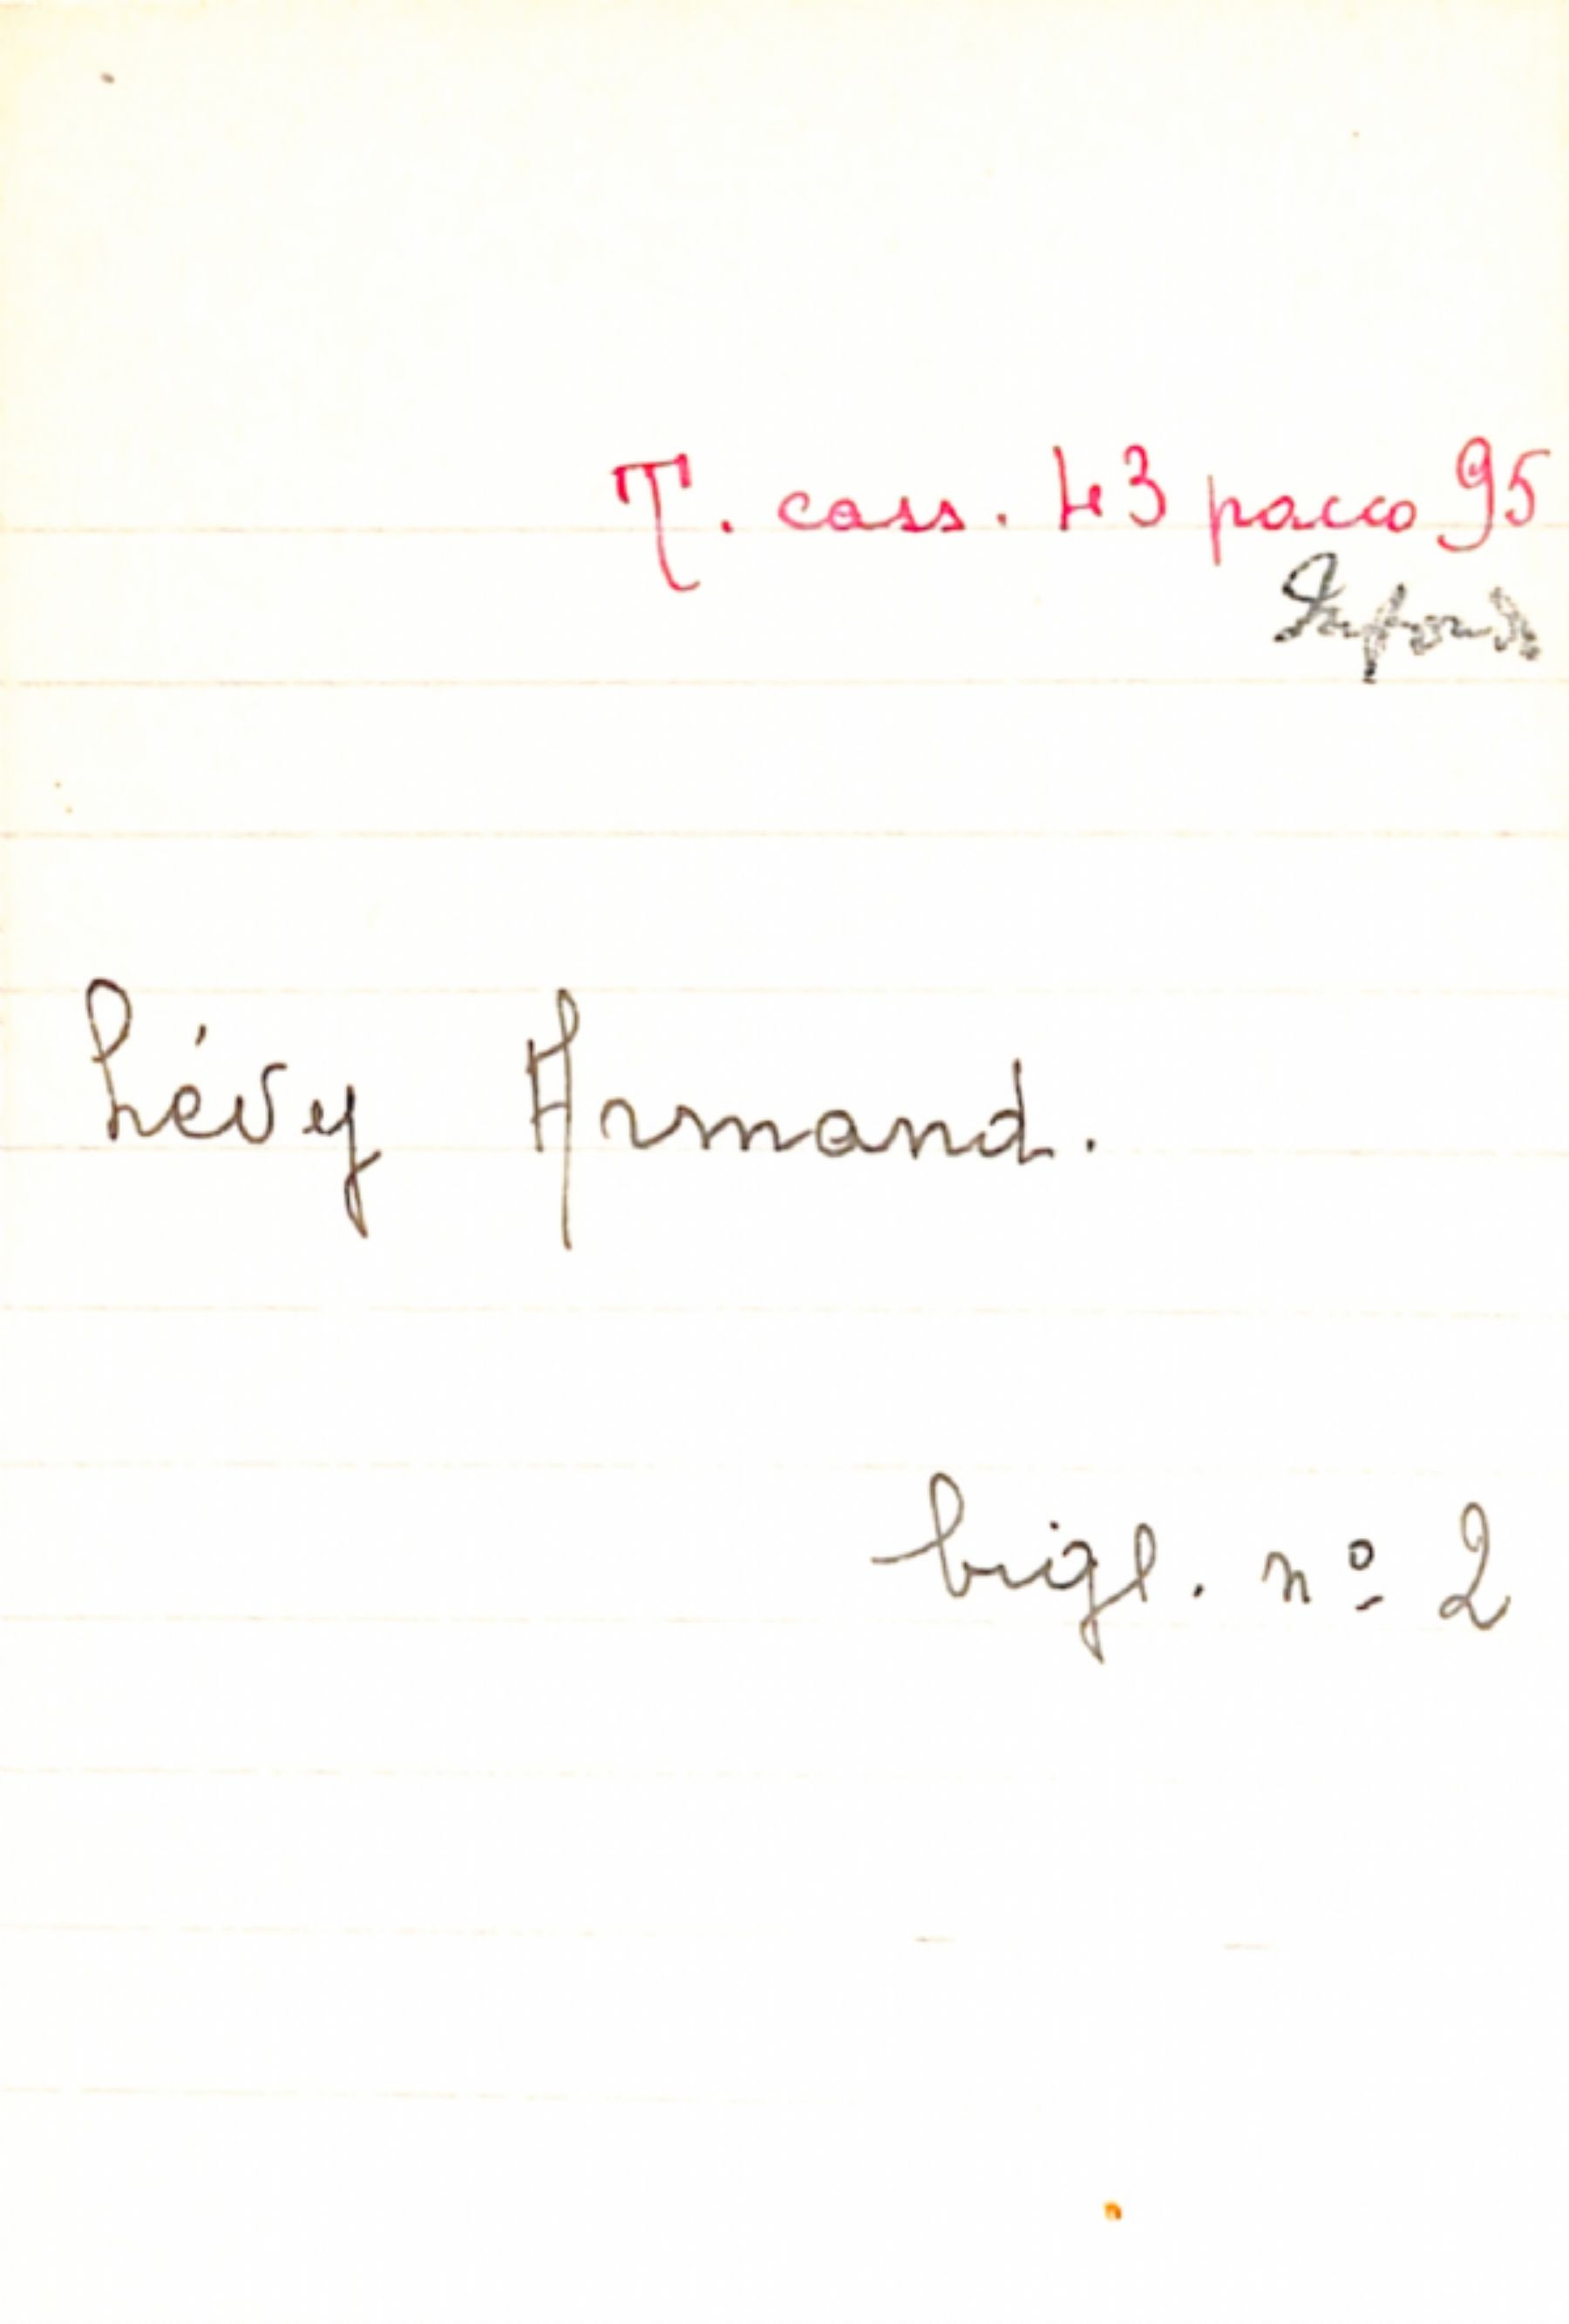 T. cass. 43 pacco 95
Lévy Armand.
bigl. nº 2